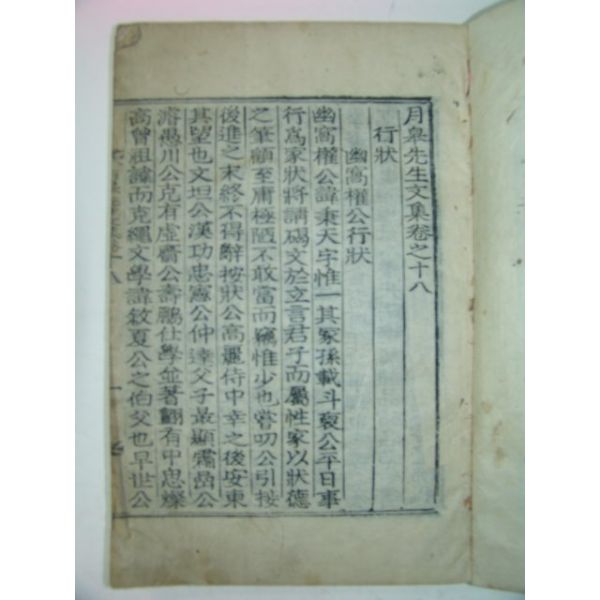 月皐先生文集卷之十八
行狀
幽窩權公行狀
幽窩權公諱秉天字惟一其冢孫載斗裒公平日事
行爲家狀將請碣文於立言君子而屬性家以狀德
之筆顧至庸極陋不敢當而竊惟少也嘗叨公引接
後進之末終不得辭按狀公高麗侍中幸之後安東
其望也文坦公漢功忠憲公仲達父子最顯霜嵒公
濬愚川公克有虛齋公壽鵬仕學並著翻有中忠燦
高曾祖諱而克繩文學諱敍夏公之伯父也早世公